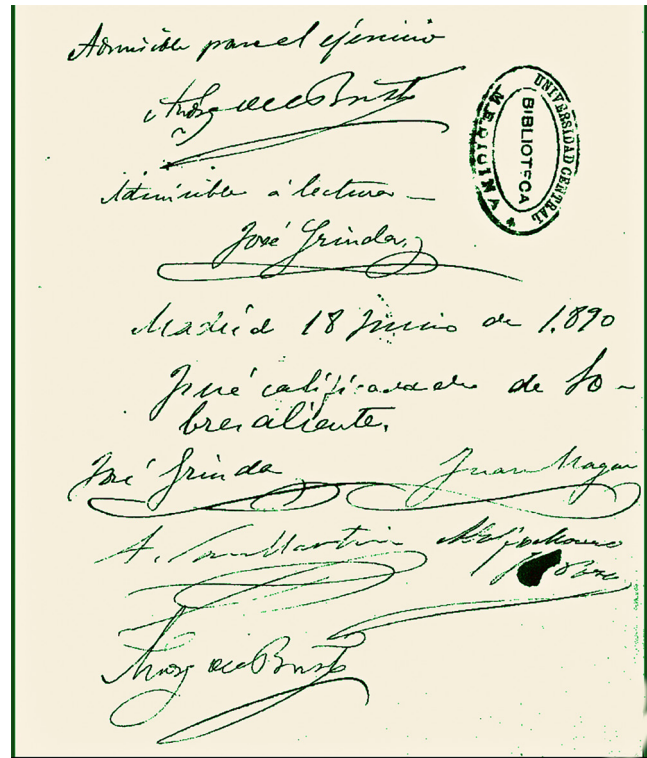 Admisible para el ejercicio
del Busto
UNIVERSIDAD CENTRAL
BIBLIOTECA
MEDICINA
Admisible á lectura
José Grinda
Madrid 18 Junio de 1.890
Fué calificada de So-
bresaliente.
José Grinda Juan Magaz
A. San Martin
del Busto